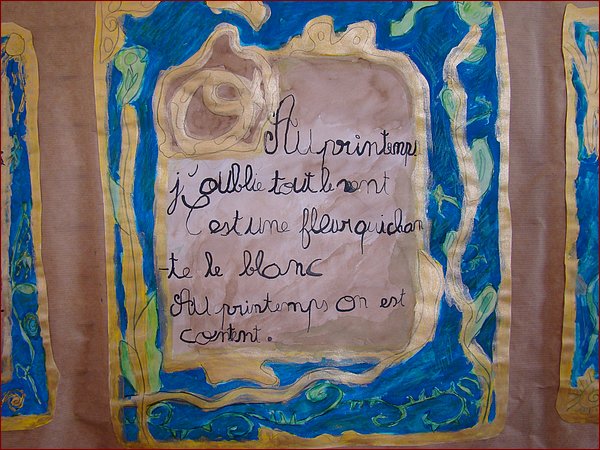 Au printemps
j'oublie tout le vent
C'est une fleur qui chan
-te le blanc
Au printemps on est
content.